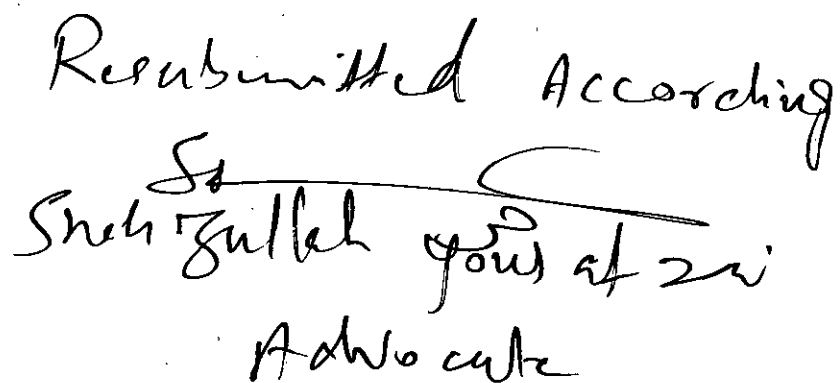 Resubmitted According
Shahzullah Yousafzai
Advocate